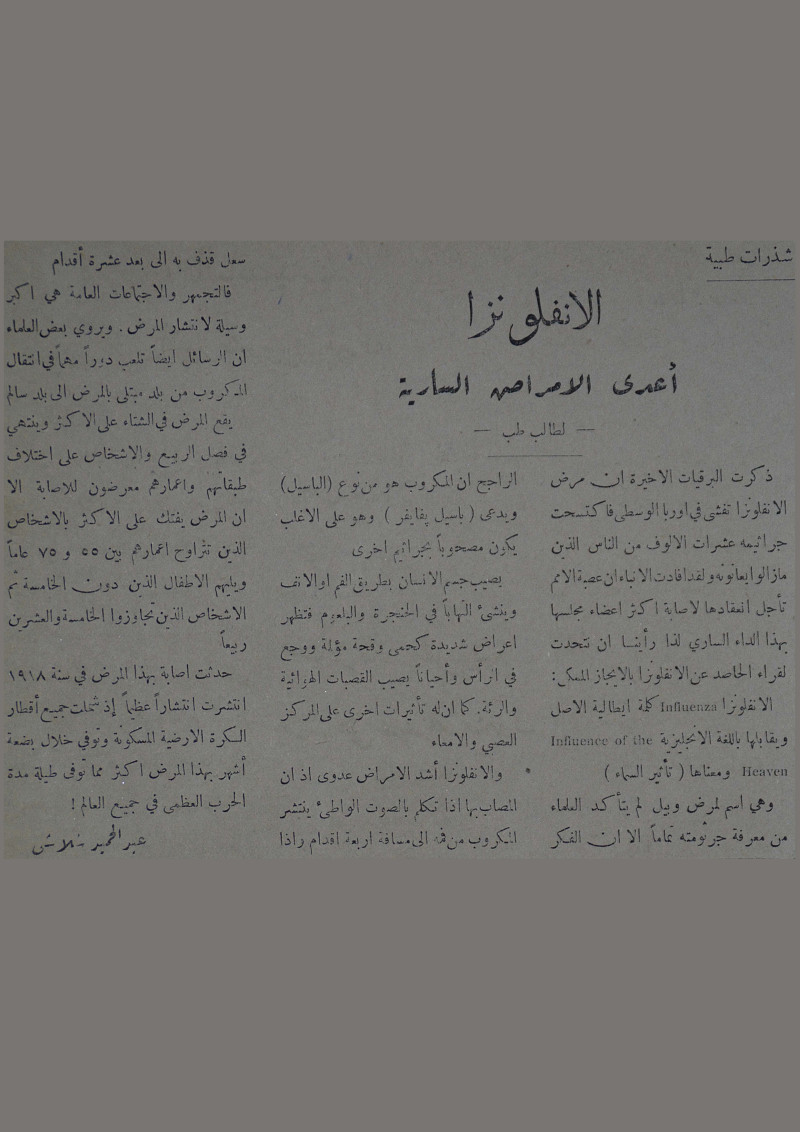 شذرات طبية
الانفلونزا
أعدى الامراض السارية
— لطالب طب —
ذكرت البرقيات الاخيرة ان مرض
الانفلونزا تفشى في اوربا الوسطى فاكتسحت
جراثيمه عشرات الالوف من الناس الذين
مازالوا يعانونه ولقد افادت الانباء ان عصبة الامم
تأجل انعقادها لاصابة اكثر اعضاء مجلسها
بهذا الداء الساري لذا رأيتنا ان نتحدث
لقراء الحاصد عن الانفلونزا بالايجاز الممكن :
الانفلونزا Influenza كلمة ايطالية الاصل
ويقابلها باللغة الانجليزية Influence of the
Heaven ومعناها ( تأثير السماء )
وهي اسم لمرض وبيل لم يتأكد العلماء
من معرفة جرثومته تماماً الا ان الفكر
الراجح ان المكروب هو من نوع (الباسيل)
ويدعى ( باسيل پفايفر ) وهو على الاغلب
يكون مصحوباً بجراثيم اخرى
يصيب جسم الانسان بطريق الفم او الانف
وينشئ التهاباً في الحنجرة والبلعوم فتظهر
اعراض شديدة كحمى وقحة مؤلمة ووجع
في الرأس وأحياناً يصيب القصبات الهوائية
والرئة . كما ان له تأثيرات اخرى على المركز
العصبي والامعاء
والانفلونزا أشد الامراض عدوى اذ ان
المصاب بها اذا تكلم بالصوت الواطئ ينتشر
المكروب من فمه الى مسافة اربعة اقدام واذا
سعل قذف به الى بعد عشرة أقدام
فالتجمهر والاجتماعات العامة هي اكبر
وسيلة لانتشار المرض . ويروي بعض العلماء
ان الرسائل ايضاً تلعب دوراً مهماً في انتقال
المكروب من بلد مبتلى بالمرض الى بلد سالم
يقع المرض في الشتاء على الاكثر وينتهي
في فصل الربيع والاشخاص على اختلاف
طبقاتهم واعمارهم معرضون للاصابة الا
ان المرض يفتك على الاكثر بالاشخاص
الذين تتراوح اعمارهم بين ٥٥ و ٧٥ عاماً
ويليهم الاطفال الذين دون الخامسة ثم
الاشخاص الذين تجاوزوا الخامسة والعشرين
ربيعاً
حدثت اصابة بهذا المرض في سنة ١٩١٨
انتشرت انتشاراً عظيماً إذ شملت جميع أقطار
الكرة الارضية المسكونة وتوفي خلال بضعة
أشهر بهذا المرض اكثر مما توفى طيلة مدة
الحرب العظمى في جميع العالم !
عبد الحميد شلاش